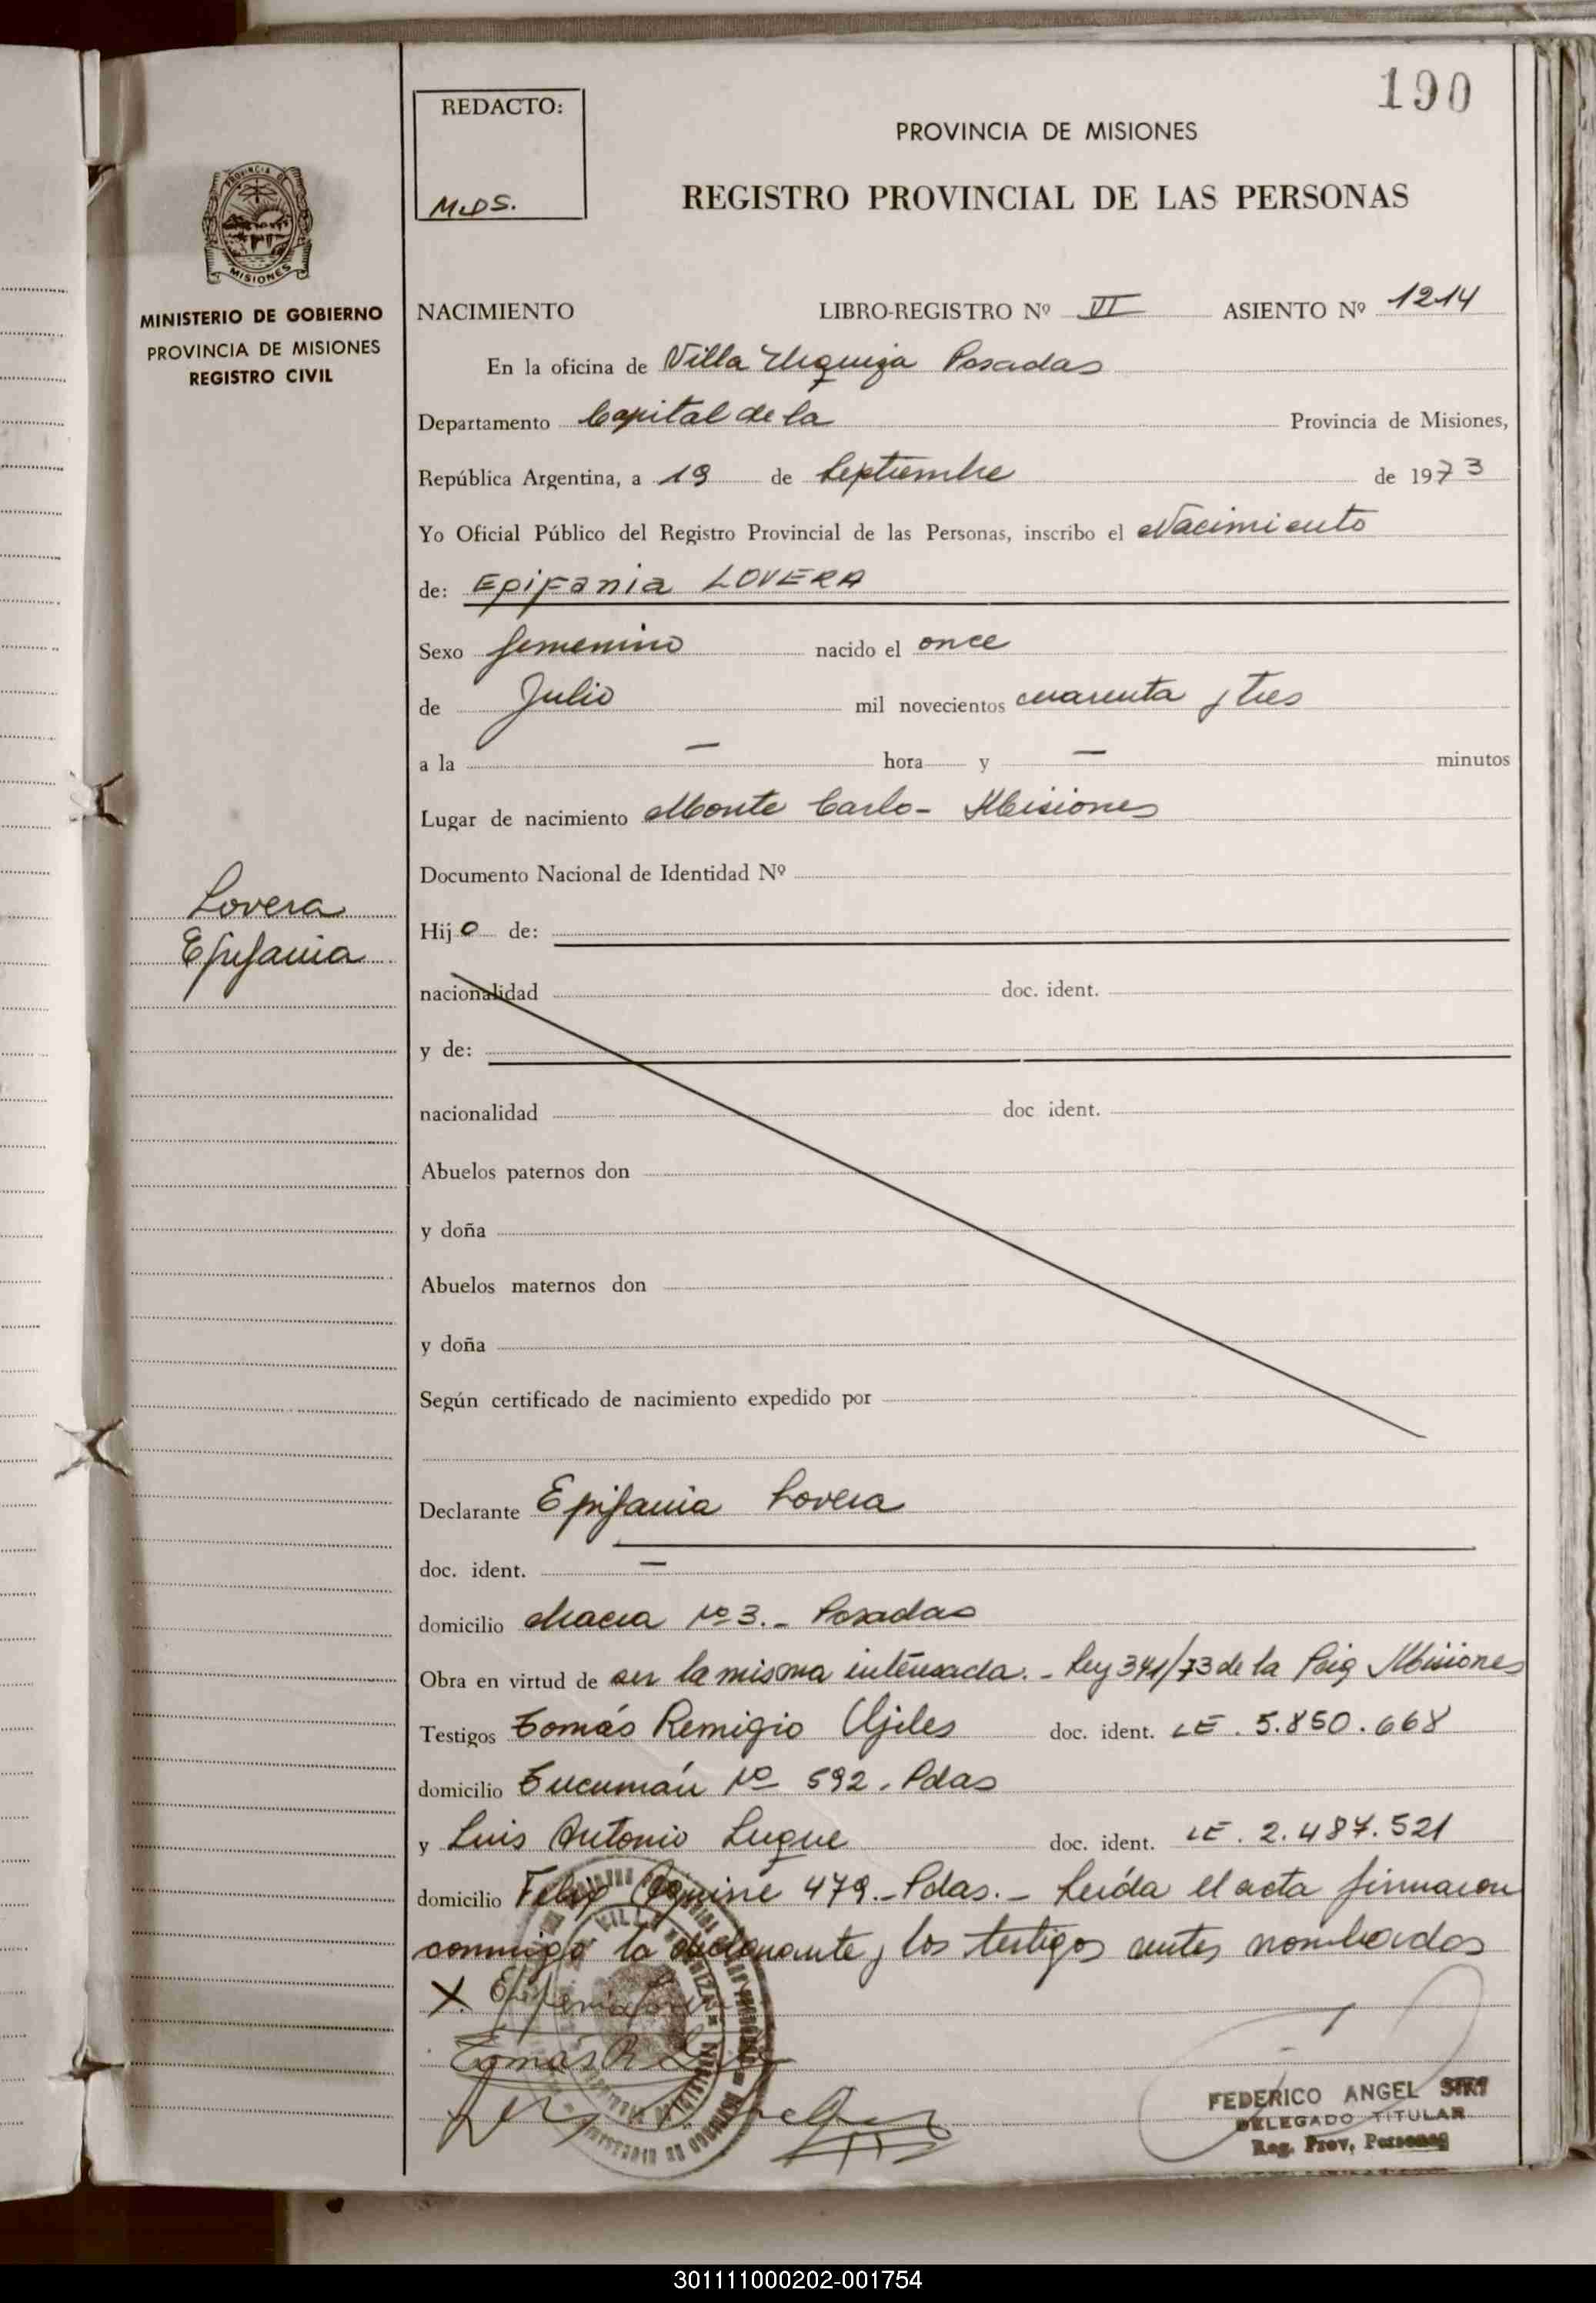 190
REDACTO:
M.D.S.
PROVINCIA DE MISIONES
REGISTRO PROVINCIAL DE LAS PERSONAS
PROVINCIA DE
MISIONES
MINISTERIO DE GOBIERNO
PROVINCIA DE MISIONES
REGISTRO CIVIL
NACIMIENTO LIBRO-REGISTRO Nº VI ASIENTO Nº 1214
En la oficina de Villa Urquiza Posadas
Departamento Capital de la Provincia de Misiones,
República Argentina, a 19 de Septiembre de 1973
Yo Oficial Público del Registro Provincial de las Personas, inscribo el Nacimiento
de: Epifania LOVERA
Sexo femenino nacido el once
de Julio mil novecientos cuarenta y tres
a la — hora y — minutos
Lugar de nacimiento Monte Carlo - Misiones
Documento Nacional de Identidad Nº
Lovera
Epifania
Hijo de:
nacionalidad doc. ident.
y de:
nacionalidad doc ident.
Abuelos paternos don
y doña
Abuelos maternos don
y doña
Según certificado de nacimiento expedido por
Declarante Epifania Lovera
doc. ident. —
domicilio chacra Nº 3.- Posadas
Obra en virtud de ser la misma interesada.- Ley 341/73 de la Pcia Misiones
Testigos Tomás Remigio Ujiles doc. ident. LE. 5.850.668
domicilio Tucumán Nº 592. Pdas
y Luis Antonio Luque doc. ident. LE. 2.487.521
domicilio Felix 479.- Pdas.- Leída el acta firmaron
conmigo la declarante y los testigos antes nombrados
X. Epifania
Tomás R
FEDERICO ANGEL
DELEGADO TITULAR
Reg. Prov. Personas
301111000202-001754